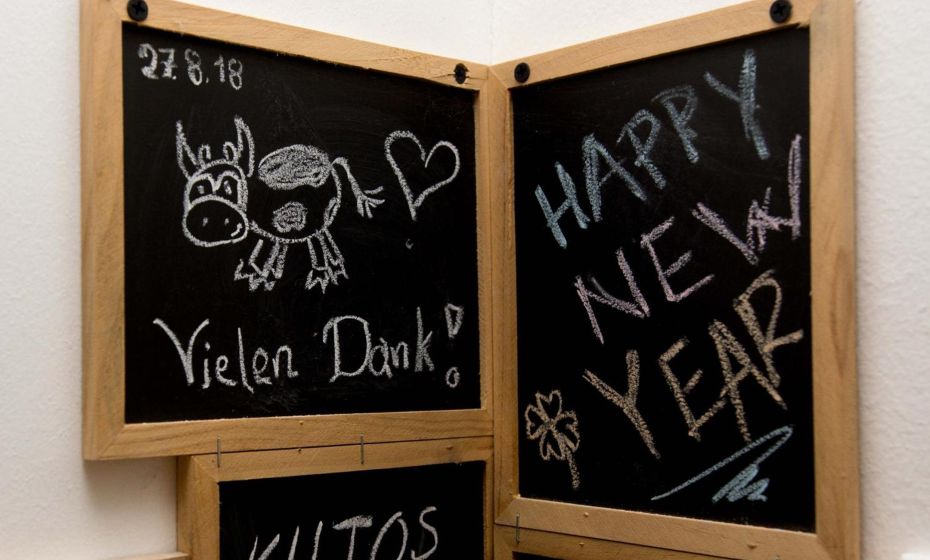 27.8.18
Vielen Dank!
HAPPY
NEW
YEAR
KIITOS